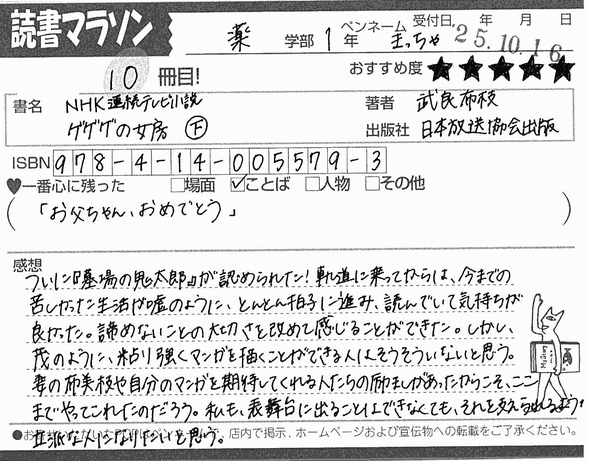 読書マラソン
薬 学部 1 年 ペンネーム まっちゃ 受付日 年 月 日
25.10.16
10 冊目!
おすすめ度 ★★★★★
書名 NHK連続テレビ小説
ゲゲゲの女房 下
著者 武良布枝
出版社 日本放送協会出版
ISBN 978-4-14-005579-3
♥一番心に残った □場面 ☑ことば □人物 □その他
(「お父ちゃん、おめでとう」)
感想
ついに『墓場の鬼太郎』が認められた!軌道に乗ってからは、今までの
苦しかった生活が嘘のように、とんとん拍子に進み、読んでいて気持ちが
良かった。諦めないことの大切さを改めて感じることができた。しかし、
茂のように、粘り強くマンガを描くことができる人はそうそういないと思う。
妻の布美枝や自分のマンガを期待してくれる人たちの励ましがあったからこそ、ここ
までやってこれたのだろう。私も、表舞台に出ることはできなくても、それを支えられるような
立派な人になりたいと思う。
店内で掲示、ホームページおよび宣伝物への転載をご了承ください。